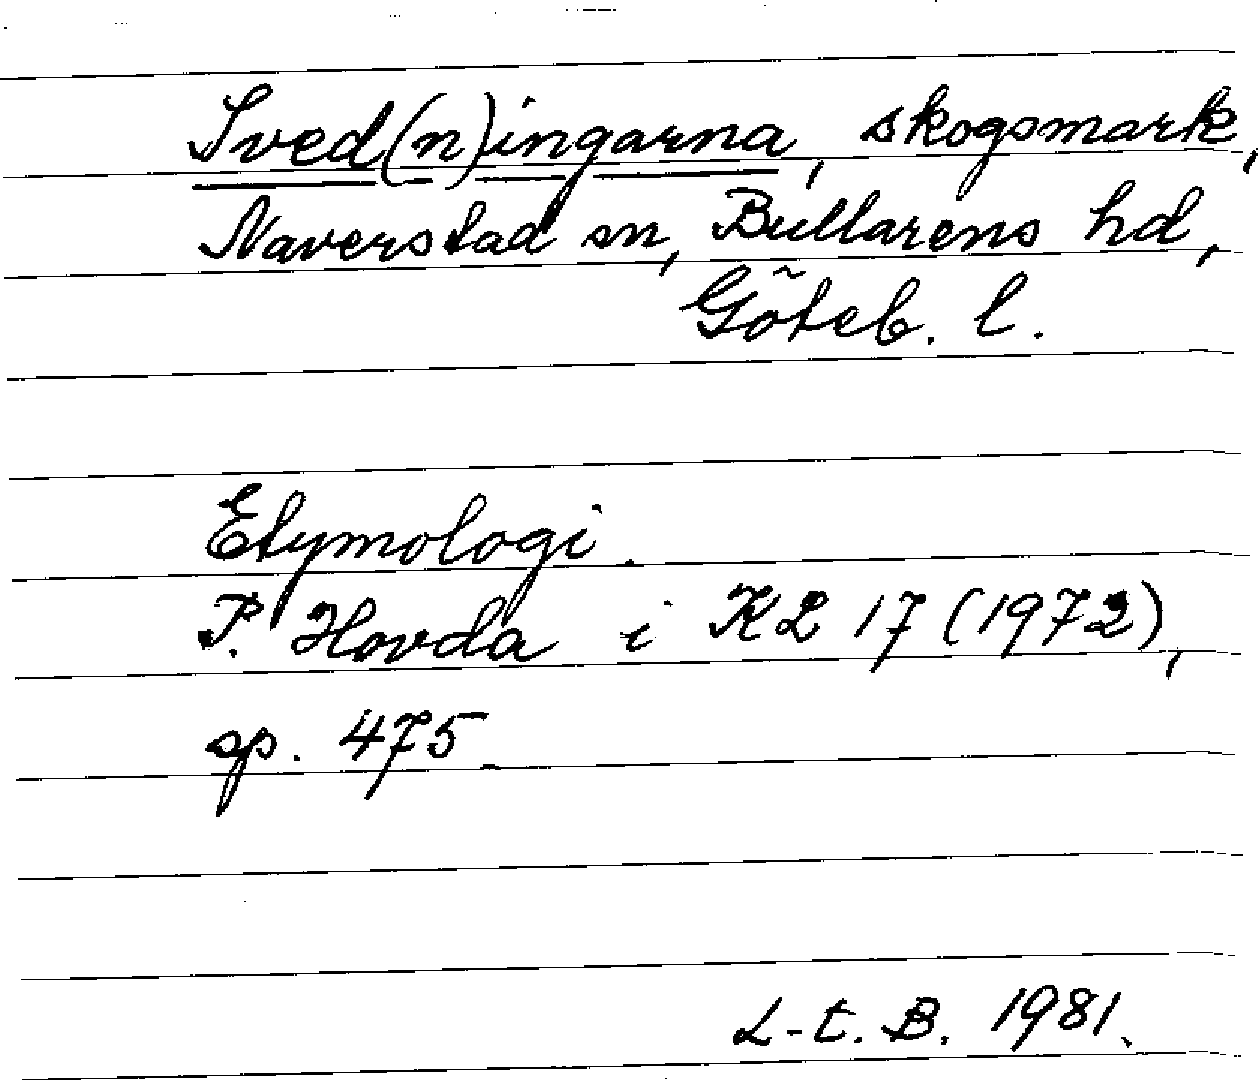 Sved(n)ingarna, skogsmark,
Naverstad sn, Bullarens hd,
Göteb. l.
Etymologi.
P. Hovda i KL 17 (1972),
sp. 475.
L-t. B. 1981.